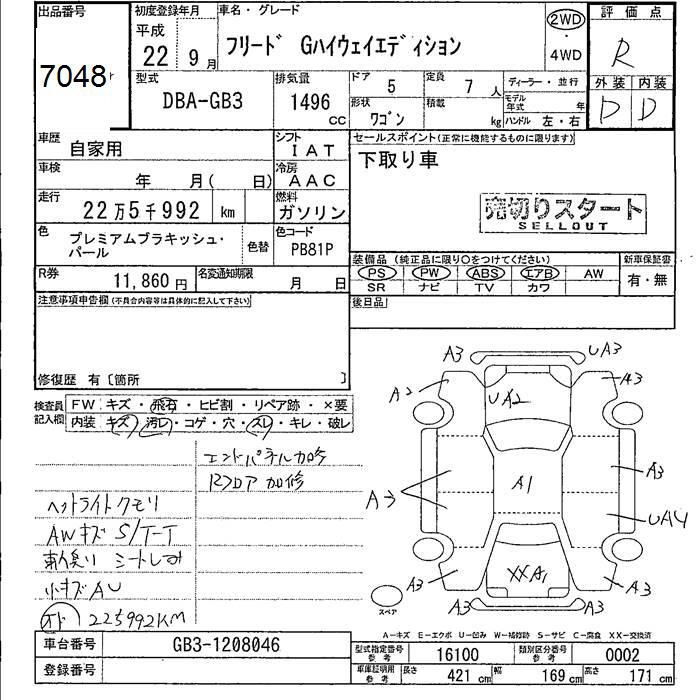 出品番号
7048
初度登録年月
平成
22年 9月
車名・グレード
フリード Gハイウェイエディション
2WD
・
4WD
評価点
R
外装 内装
D D
型式
DBA-GB3
排気量
1496
CC
ドア 5
定員 7 人
形状 ワゴン
積載 kg
ディーラー・並行
モデル年式 年
ハンドル 左・右
車歴
自家用
シフト
IAT
車検
年 月( 日)
冷房
AAC
走行
22万5千992 km
燃料
ガソリン
色
プレミアムブラキッシュ・パール
色替
色コード
PB81P
R券
11,860円
名変通知期限
月 日
セールスポイント(正常に機能するものに限ります)
下取り車
売切りスタート
SELLOUT
装備品(純正品に限り○をつけてください)
PS PW ABS エアB AW
SR ナビ TV カワ
新車保証書
有・無
後日品
注意事項申告欄(不具合内容等は具体的に記入して下さい)
修復歴 有〔箇所 〕
検査員記入欄
FW キズ・飛石・ヒビ割・リペア跡・×要
内装 キズ・汚レ・コゲ・穴・スレ・キレ・破レ
エンドパネル加修
Rフロア加修
ヘッドライトクモリ
AWキズ S/T-T
車内臭い シートしみ
小キズAU
オド 225992KM
A3
UA3
A2
A3
UA2
A3
A1
A3
UA4
A3
XXA1
A3
A3
A3
スペア
A-キズ E-エクボ U-凹み W-補修跡 S-サビ C-腐食 XX-交換済
車台番号
GB3-1208046
登録番号
型式指定番号参考
16100
類別区分番号参考
0002
車庫証明用参考
長さ 421 cm
幅 169 cm
高さ 171 cm